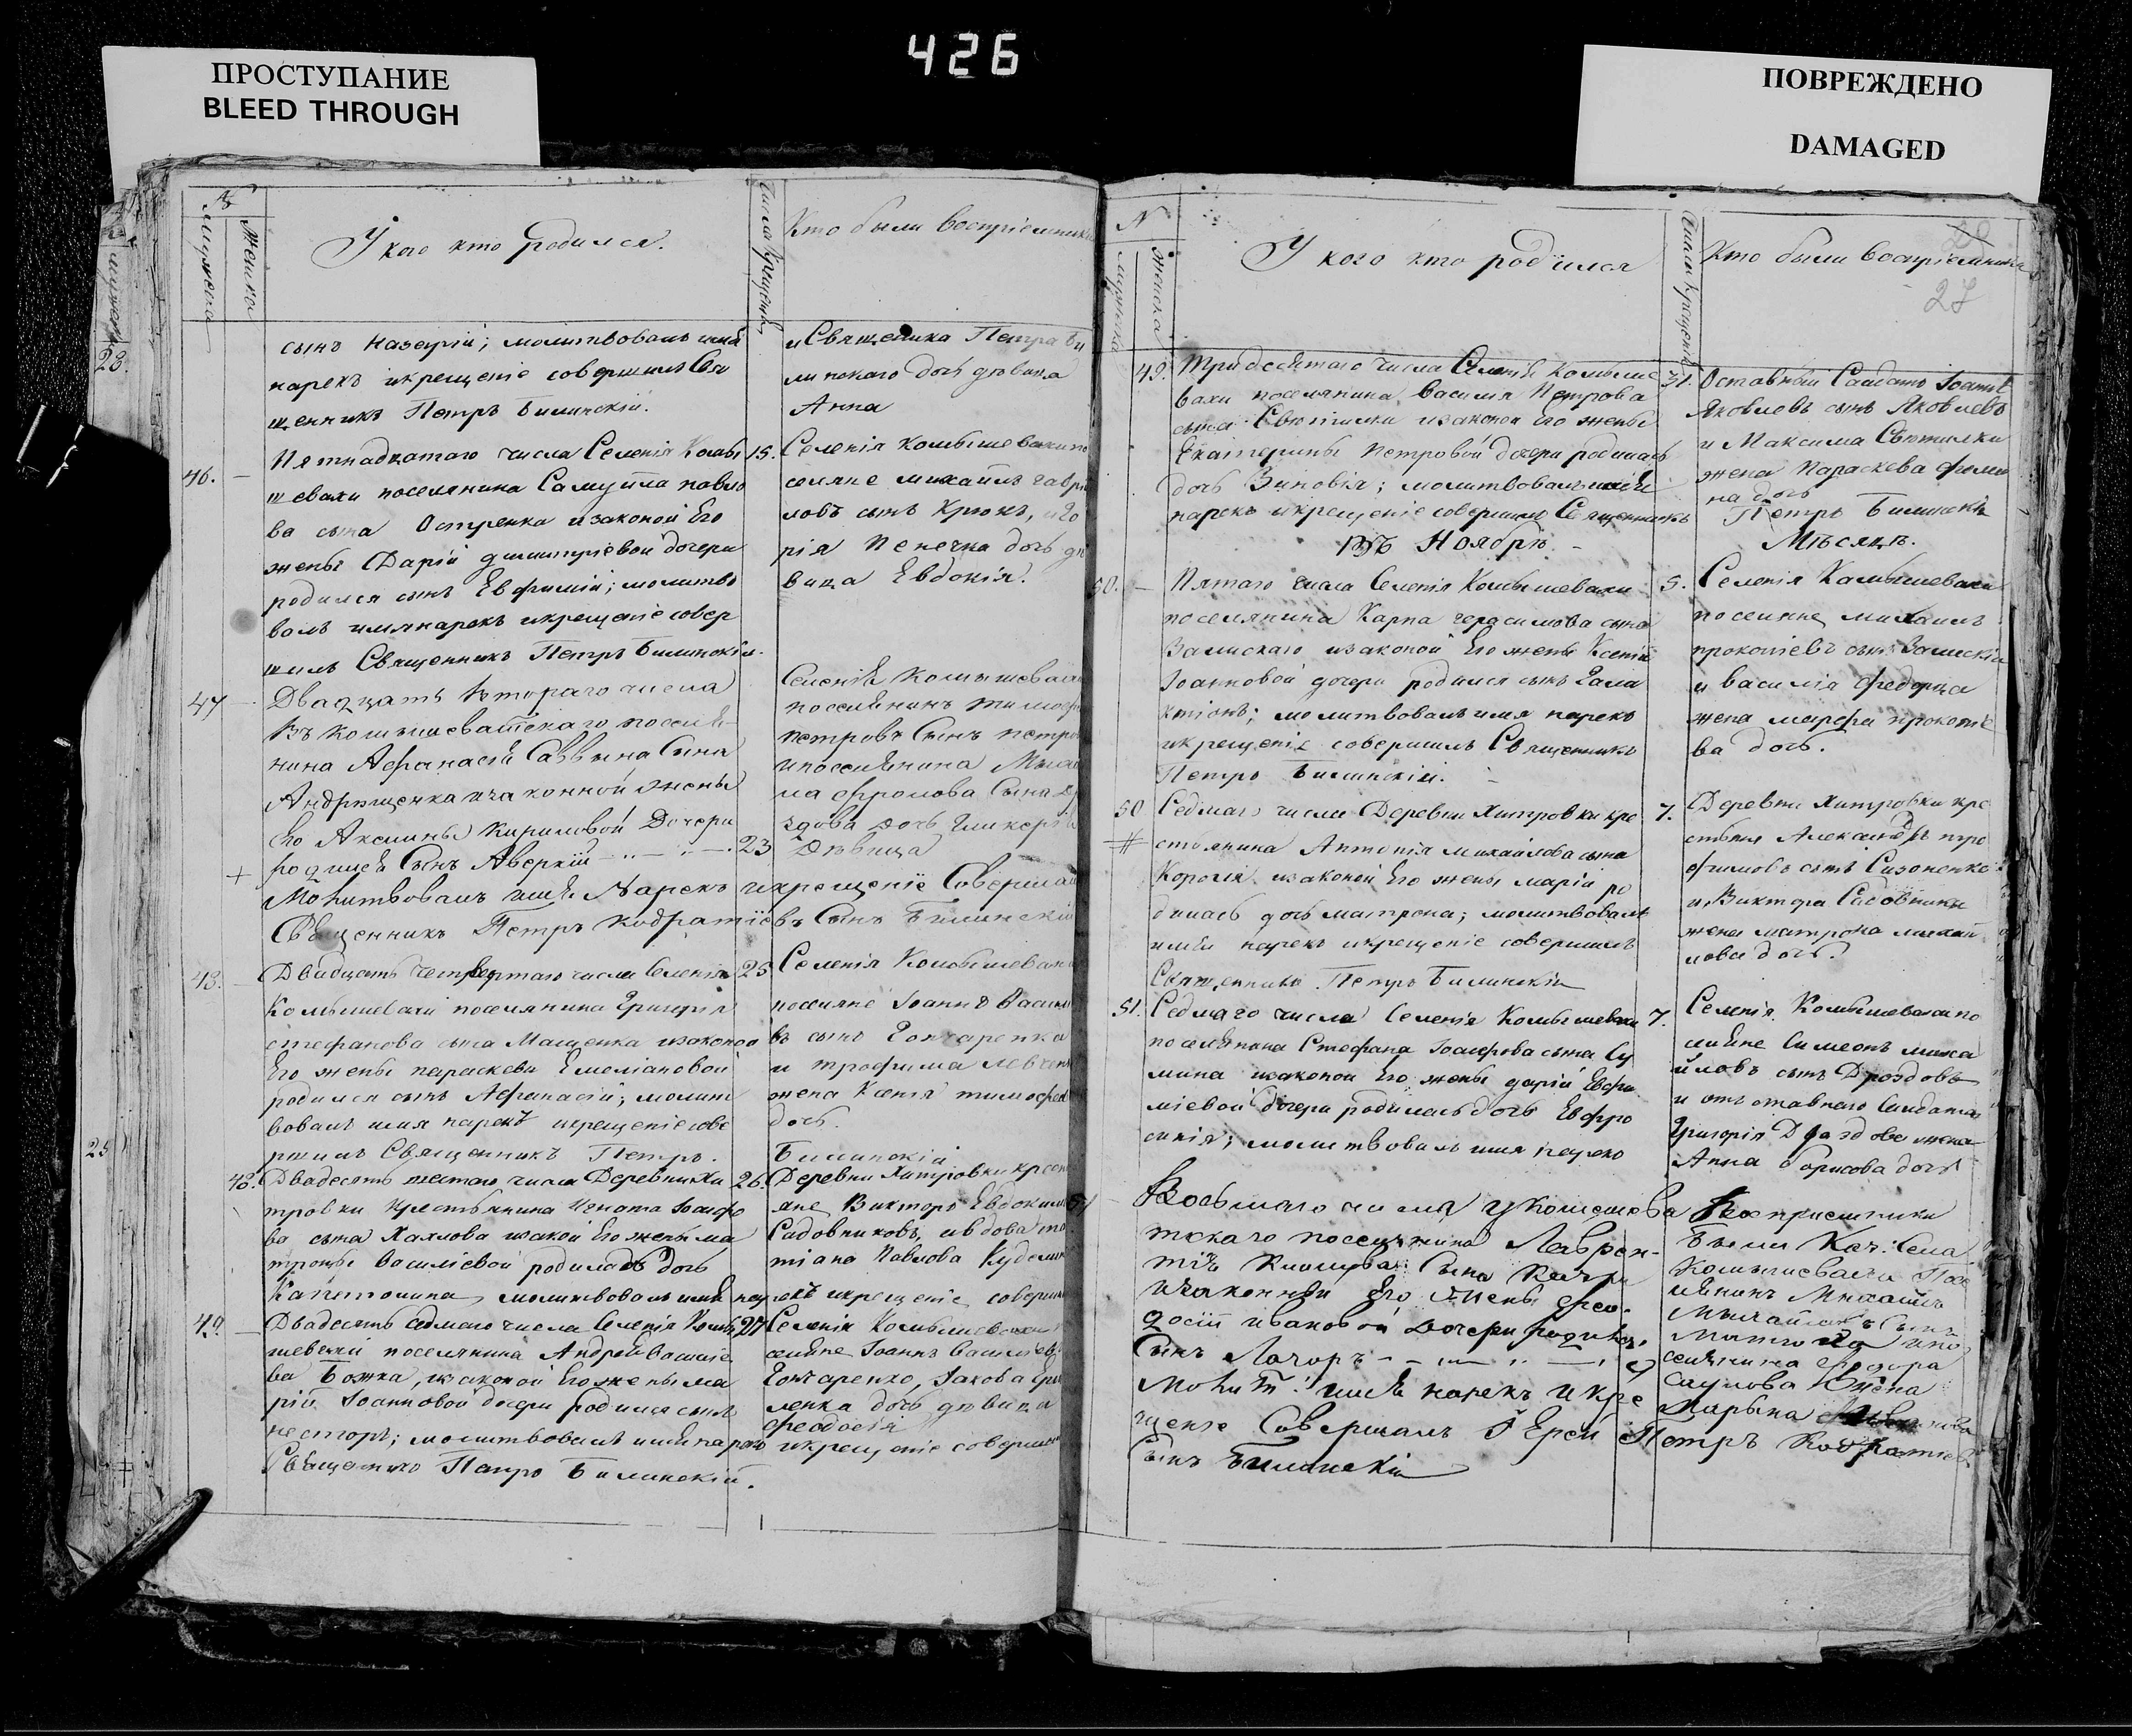 426
ПРОСТУПАНИЕ
BLEED THROUGH
ПОВРЕЖДЕНО
DAMAGED
№
мужска
женска
У кого кто родился.
Числа крещенія
Кто были воспріемники
сынъ Назарій; молитвовалъ имя
нарекъ и крещеніе совершилъ Свя
щенникъ Петръ Билинскій.
и Священика Петра Би
линскаго дочь дѣвица
Анна
46.
Пятнадцатаго числа Селенія Комы
шевахи поселянина Самуила Павло
ва сына Остренка и законой Его
жены Дарiи Димитріевой дочери
родился сынъ Евфимій; молитво
валъ имя нарекъ и крещеніе совер
шилъ Священникъ Петръ Билинскій.
15.
Селенія Комышевахи по
селяне Михаилъ Гаврі
ловъ сынъ Крюкъ,
рія Пенечка дочь дѣ
вица Евдокія.
47
Двадцать втораго числа
Въ Комышеватскаго поселя
нина Афанасія Саввина Сына
Андрющенка и законной жены
Его Аксиньи Кириловой Дочери
родился Сынъ Аверкій
23
Селенія Комышевахи
поселянинъ
Петровъ Сынъ Петро
и поселянина
ла Фролова Сына
здова дочь Гликерія
Дѣвица
Молитвовалъ имя Нарекъ и крещеніе Совершилъ
Священникъ Петръ Кодратіевъ Сынъ Билинскій
48.
Двадцать четвертаго числа Селенія
Комышевахи поселянина Григорія
Стефанова сына Мащенка и законой
Его жены Параскевы Емеліановой
родился сынъ Афанасій; молит
вовалъ имя нарекъ и крещеніе сове
ршилъ Священникъ Петръ.
25
Селенія Комышевахи
поселяне Іоаннъ Василіе
въ сынъ Гончаренко
и Трофима Левченк
жена Ксенія Тимофее
дочь.
Билинскій
48.
Двадесять шестаго числа Деревни Хи
тровки Крестьянина Игната Іосифо
ва сына Хахлова и законой Его жены Ма
троны Василіевой родилась дочь
Капитолина, молитвовалъ имя нарекъ и крещеніе соверши
26.
Деревни Хитровки кресть
яне Викторъ Евдоким
Садовниковъ, и вдова Та
тіана Павлова
49.
Двадесять седмаго числа Селенія Комы
шевахи поселянина Андрея Василіе
ва Божка, и законой Его жены Ма
ріи Іоанновой дочери родился сынъ
Несторъ; молитвовалъ имя нарекъ и крещеніе совершилъ
Священникъ Петръ Билинскій.
27
Селенія Комышевахи
селяне Іоаннъ Василіевъ
Гончаренко, Іакова
ленка дочь дѣвица
Феодосія
N
мужска
женска
У кого кто родился
Числа крещенія
Кто были воспріемники
27
49.
Тридесятаго числа Селенія Комыше
вахи поселянина Василія Петрова
сына Свѣтилки и законой Его жены
Екатерины Петровой дочери родилась
дочь Зиновія; молитвовалъ имя
нарекъ и крещеніе совершилъ Священникъ
31.
Оставный Салдатъ Іоаннъ
Яковлевъ сынъ Яковлевъ
и Максима Свѣтилки
жена Параскева
на дочь
Петръ Билинскій
Въ Ноябрѣ Мѣсяцѣ.
50.
Пятаго числа Селенія Комышевахи
поселянина Карпа Герасимова сына
Залискаго и законой Его жены Ксеніи
Іоанновой дочери родился сынъ Гала
ктіонъ; молитвовалъ имя нарекъ
и крещеніе совершилъ Священникъ
Петръ Билинскій.
5.
Селенія Комышевахи
поселяне Михаилъ
Прокопіевъ сынъ Залискій
и Василія Федорца
жена Марфа Прокопіе
ва дочь.
50
Седмаго числа Деревни Хитровки кре
стьянина Антонія Михаилова сына
Короля и законой Его жены Маріи ро
дилась дочь Матрона; молитвовалъ
имя нарекъ и крещеніе совершилъ
Священникъ Петръ Билинскій
7.
Деревни Хитровки кре
стьяне Александръ Тро
фимовъ сынъ Сизоненко
и Виктора Садовника
жена Матрона Михай
лова дочь.
51.
Седмаго числа Селенія Комышевахи
поселянина Стефана Іосифова сына Су
мина и законой Его жены Даріи Евфи
міевой дочери родилась дочь Евфро
синія; молитвовалъ имя нареко
7.
Селенія Комышевахи по
селяне Симеонъ Миха
йловъ сынъ Дроздовъ
и отъставнаго Салдата
Григорія Дроздова жена
Анна Борисова дочь
51
Восьмаго числа у Комышева
тскаго поселянина Лаврен-
тія Сына
и законной Его Жены Фео-
досіи Ивановой дочери родился
Сынъ
Молит: имя нарекъ и кре
щеніе Совершалъ Іерей Петръ Кодратіевъ
Сынъ Билинскій
Воспріемники
Были Каз: Села
Комышевахи Посе
лянинъ Михаилъ
Михайловъ Сынъ
и по
селянина Федора
Жена
Марына